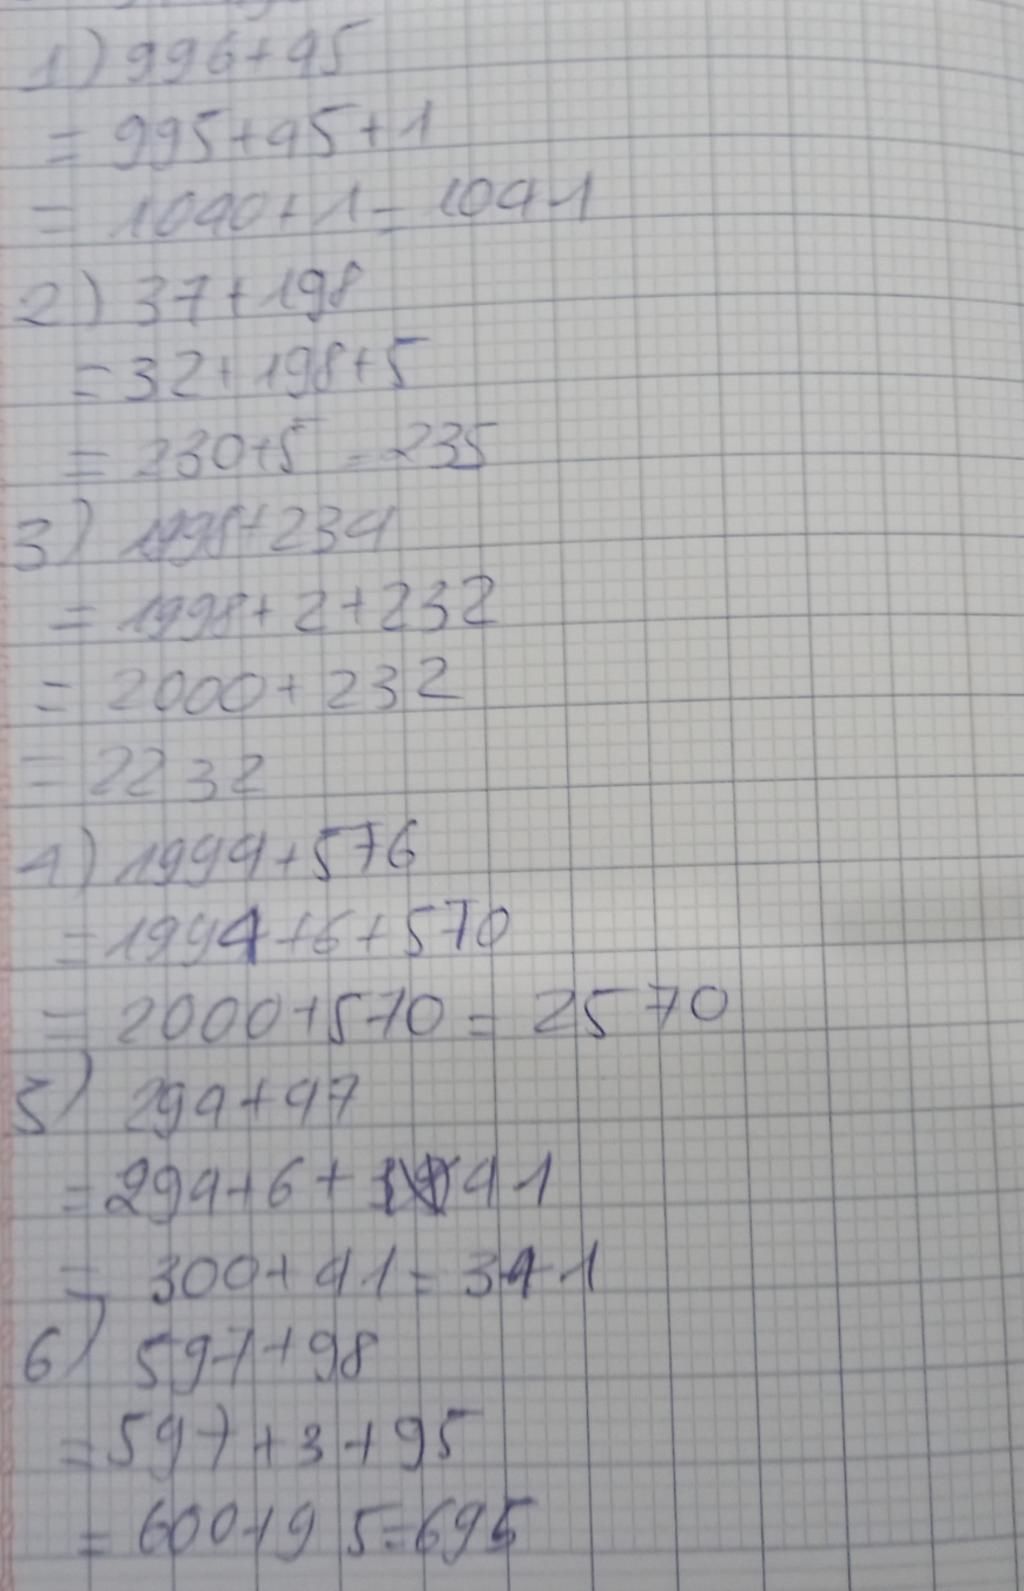 1) 996+45
= 995+45+1
= 1040+1 = 1041
2) 37+198
= 32+198+5
= 230+5 = 235
3) 1998+234
= 1998+2+232
= 2000+232
= 2232
4) 1994+576
= 1994+6+570
= 2000+570 = 2570
5) 294+47
= 294+6+41
= 300+41 = 341
6) 597+98
= 597+3+95
= 600+95=695